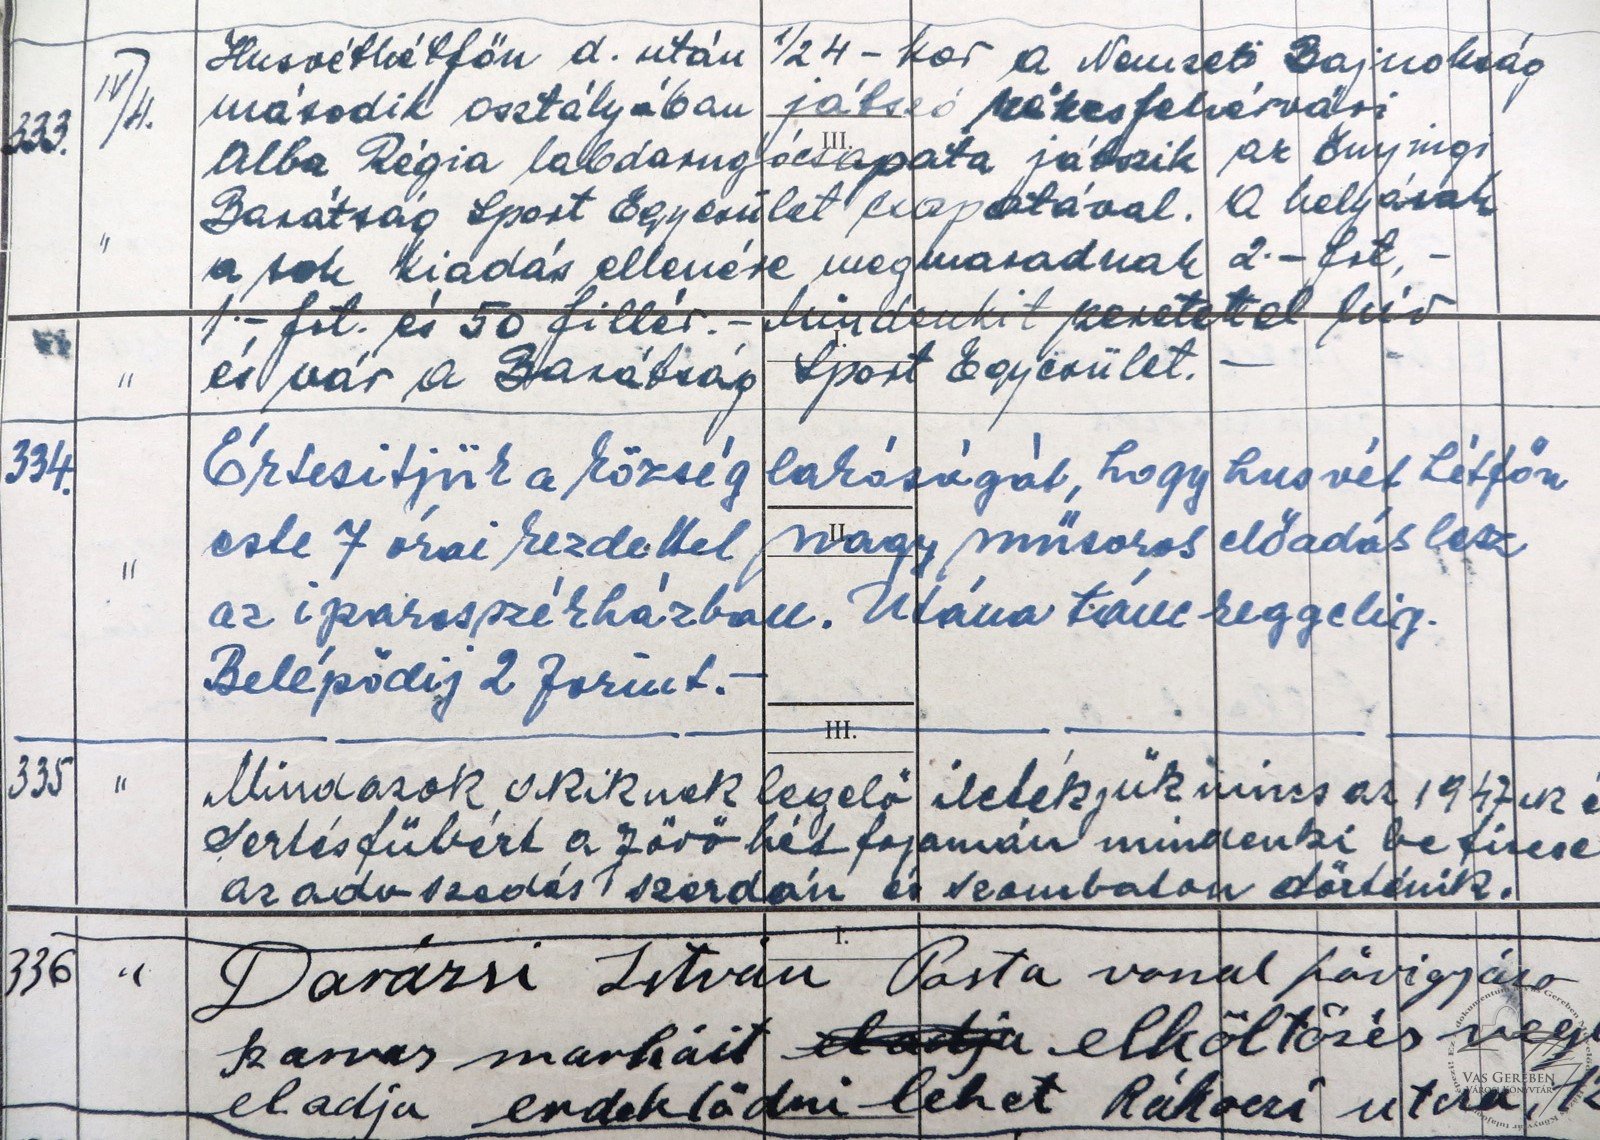 333. IV/4. Husvéthétfőn d. után 1/2 4-kor a Nemzeti Bajnokság
második osztályában játszó székesfehérvári
III.
Alba Régia labdarugócsapata játszik az Enyingi
" Barátság Sport Egyesület csapatával. A helyárak
a sok kiadás ellenére megmaradnak 2.- frt, -
1.- frt. és 50 fillér. - Mindenkit szeretettel hív
I.
" és vár a Barátság Sport Egyesület. -
334. Értesitjük a község lakóságát, hogy husvét hétfőn
II.
" este 7 órai kezdettel nagy műsoros előadás lesz
az iparosszékházban. Utána tánc reggelig.
Belépődij 2 forint. -
III.
335 " Mindazok akiknek legelő illetékjük nincs az 1947
sertésfűbért a jövő hét fojamán mindenki be
az adószedés szerdán és szombaton történik.
I.
336 " Darázsi István Posta vonal
szarvas marháit eladja elköltözés
eladja erdeklődni lehet Rákoczi utca
VAS GEREBEN
VÁROSI KÖNYVTÁR